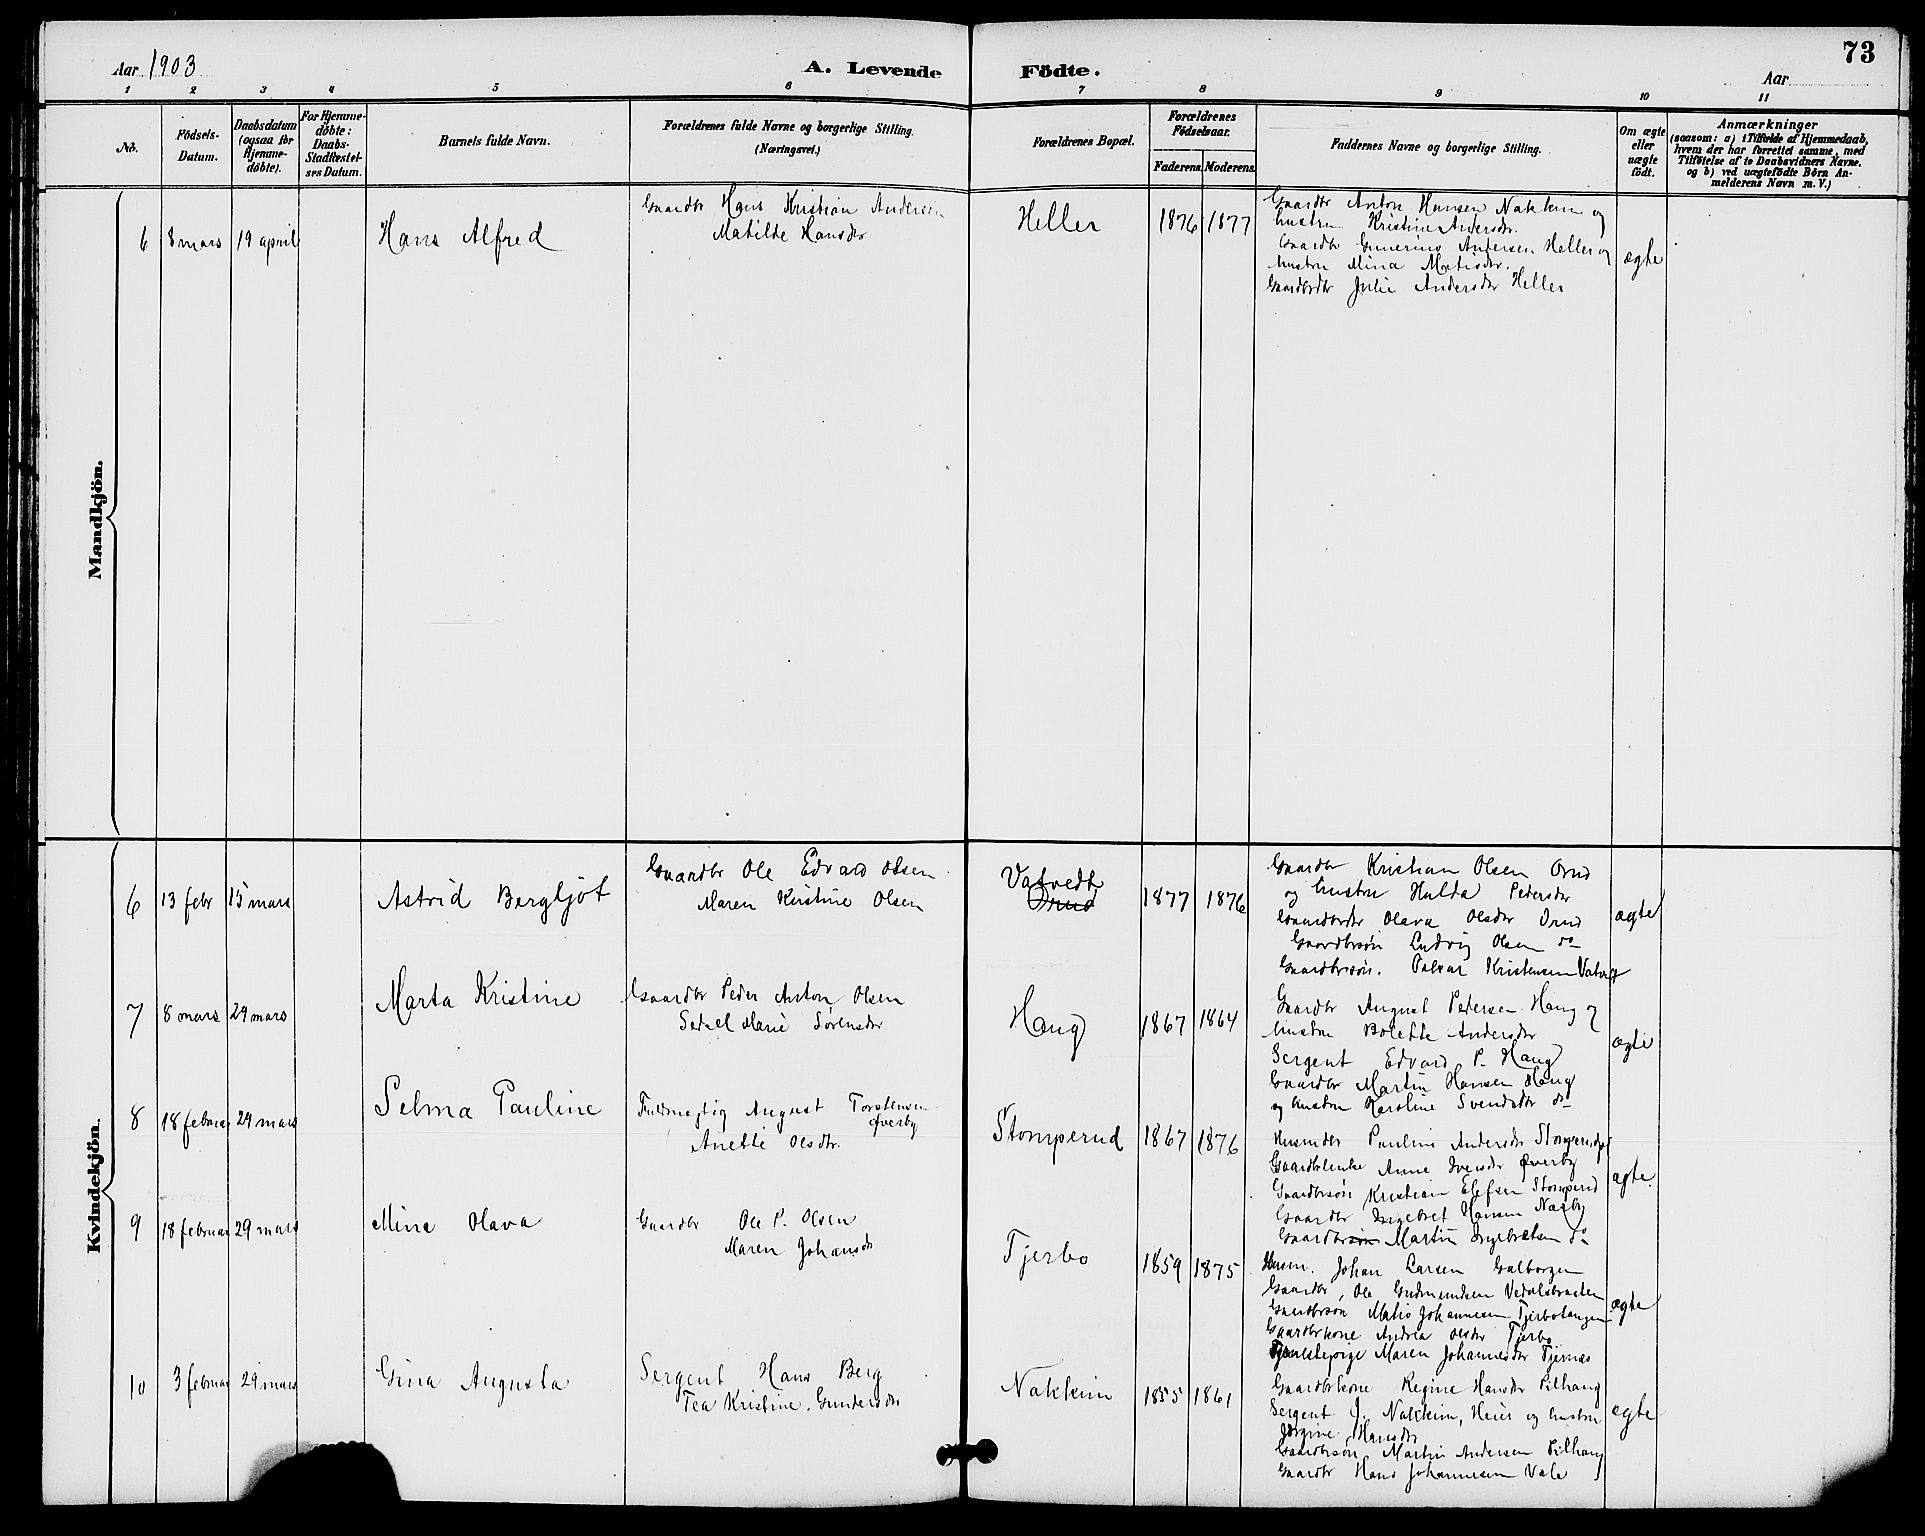 73
Aar 1903
A. Levende
Födte.
Aar
1 2 3 4 5 6 7 8 9 10 11
No.
Födsels-
Datum.
Daabsdatum
(ogsaa for
Hjemme-
døbte).
For Hjemme-
døbte:
Daabs-
Stadfæstel-
ses Datum.
Barnets fulde Navn.
Forældrenes fulde Navne og borgerlige Stilling.
(Næringsvei.)
Forældrenes Bopæl.
Forældrenes
Födselsaar.
Faderens. Moderens.
Faddernes Navne og borgerlige Stilling.
Om ægte
eller
uægte
födt.
Anmærkninger
(saasom: a) i Tilfælde af Hjemmedaab,
hvem der har forrettet samme, med
Tilföielse af to Daabsvidners Navne,
og b) ved uægtefödte Börn An-
melderens Navn m. V.)
Mandkjön.
6 8 mars 19 april
Hans Alfred
Gaardbr Hans Kristian Andersen
Matilde Hansdr
Heller
1876 1877
Gaardbr Anton Hansen Nakkim og
hustru Kristine Andersdr.
Gaardbr Gunerius Andersen Heller og
hustru Mina Matisdr.
Gaardbrdtr Julie Andersdr Heller
ægte
Kvindekjön.
6 13 febr 15 mars
Astrid Bergljot
Gaardbr Ole Edvard Olsen
Maren Kirstine Olsen
Vatvedt
Ørud
1877 1876
Gaardbr Kristian Olsen Ørud
og hustru Hulda Pedersdr
Gaardbrdtr Olava Olsdr Ørud
Gaardbrsøn Ludvig Olsen do
Gaardbrsøn. Kristensen Vatvedt
ægte
7 8 mars 29 mars
Marta Kristine
Gaardbr Peder Anton Olsen
Marie Sørensdr
Haug
1867 1864
Gaardbr August Pedersen Haug og
hustru Bolette Andersdr
Sergent Edvard P. Haug
Gaardbr Martin Hansen Haug
og hustru Karoline Svendsdr do
ægte
8 18 februar 29 mars
Selma Pauline
Fuldmægtig August Torstensen
Øverby
Anette Olsdtr.
Stomperud
1867 1876
Pauline Andersdr Stomperud
Gaardbrenke Anne Iversdr Øverby
Gaardbrsøn Kristian Elefsen Stomperud
Gaardbr Ingebret Hansen Næsby
Gaardbrsøn Martin Ingebretsen do
ægte
9 18 februar 29 mars
Mina Olava
Gaardbr Ole P. Olsen
Maren Johansdr
Tjerbo
1859 1875
Husm. Johan Larsen
Gaardbr. Ole Gudmundsen Vedalsbraaten
Gaardbrsøn Matis Johannesen Tjerbotangen
Gaardbrkone Andrea Olsdr Tjerbo
Tjenestepige Maren Johannesdr Tjernes
ægte
10 3 februar 29 mars
Gina Augusta
Sergent Hans Berg
Tea Kristine Gundersdr
Nakkim
1855 1861
Gaardbrkone Regine Hansdr Pilhaug
Sergent J. Nakkim, Heier og hustru
Jørgine Hansdr
Gaardbrsøn Martin Andersen Pilhaug
Gaardbr Hans Johannesen Vale
ægte